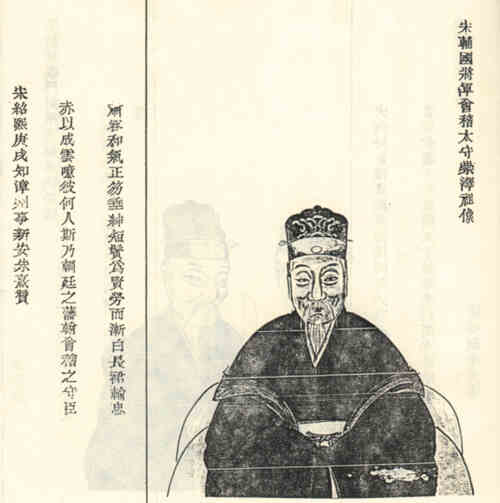 宋輔國將軍會稽太守榮澤祖像
容和氣正笏垂紳短鬢為賢勞而漸白長裾
赤以成雲噫彼何人斯乃朝廷之藩翰會稽之守臣
宋紹熙庚戌知漳州事新安朱熹贊